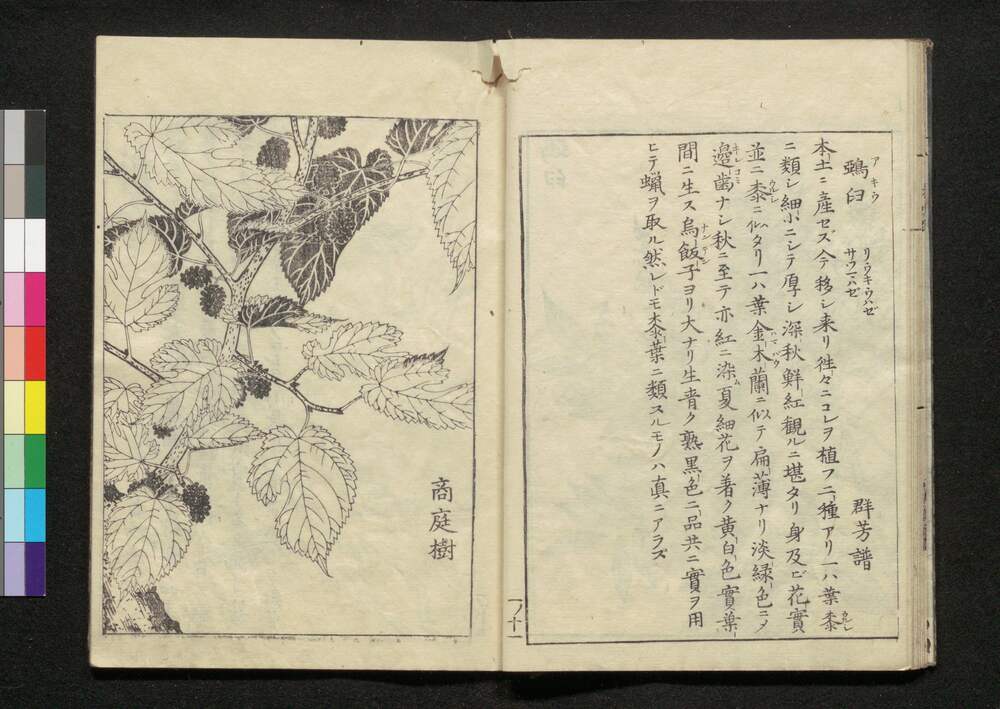 鴉臼 アキウ リウキウハゼ サウハゼ 群芳譜
本土ニ産セズ今移シ来リ徃々ニコレヲ植フ二種アリ一ハ葉桼ウルシ
ニ類シ細小ニシテ厚シ深秋鮮紅観ルニ堪タリ身及ビ花實
並ニ桼ウルシニ似タリ一ハ葉金木蘭ニ似テ扁薄ナリ淡緑色ニメ
邉歯キレコミナシ秋ニ至テ亦紅ニ染ム夏細花ヲ着ク黄白色實葉
間ニ生ス烏飯子ナンテンヨリ大ナリ生青ク熟黒色二品共ニ實ヲ用
ヒテ蝋ヲ取ル然レドモ桼葉ニ類スルモノハ真ニアラズ
一ノ十一
商庭樹